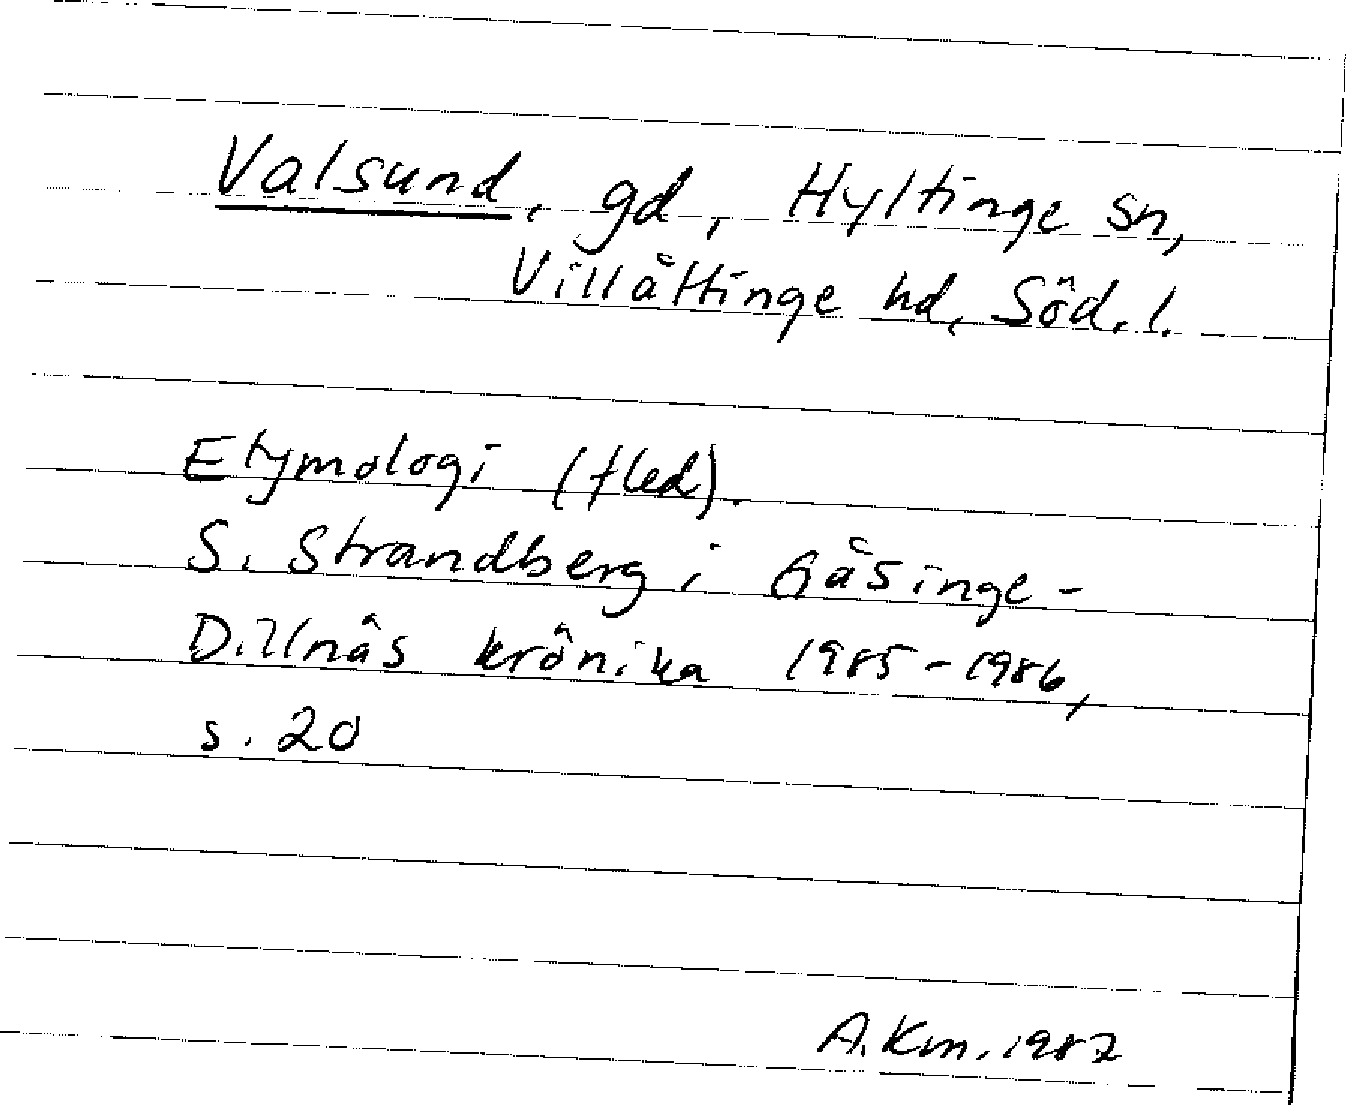 Valsund, gd, Hyltinge sn,
Villåttinge hd, Söd. l.
Etymologi (fled).
S. Strandberg i Gåsinge-
Dillnäs krönika 1985-1986,
s. 20
A. Km. 1987